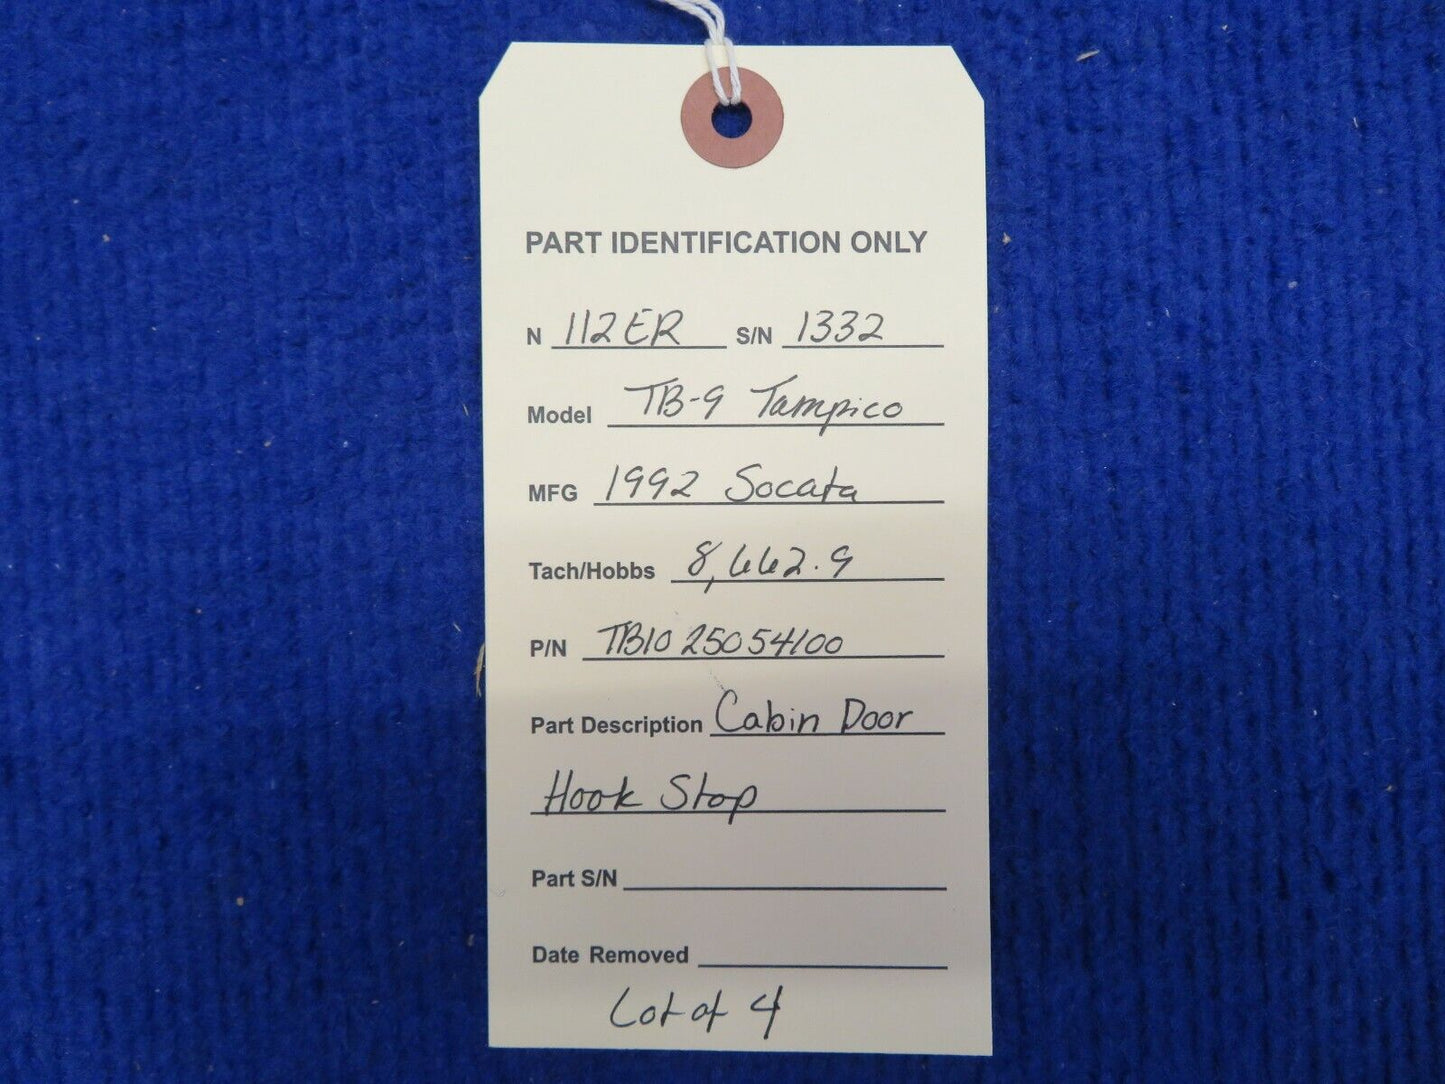 PART IDENTIFICATION ONLY
N 112ER S/N 1332
Model TB-9 Tampico
MFG 1992 Socata
Tach/Hobbs 8,662.9
P/N TB10 25054100
Part Description Cabin Door
Hook Stop
Part S/N
Date Removed
Lot of 4